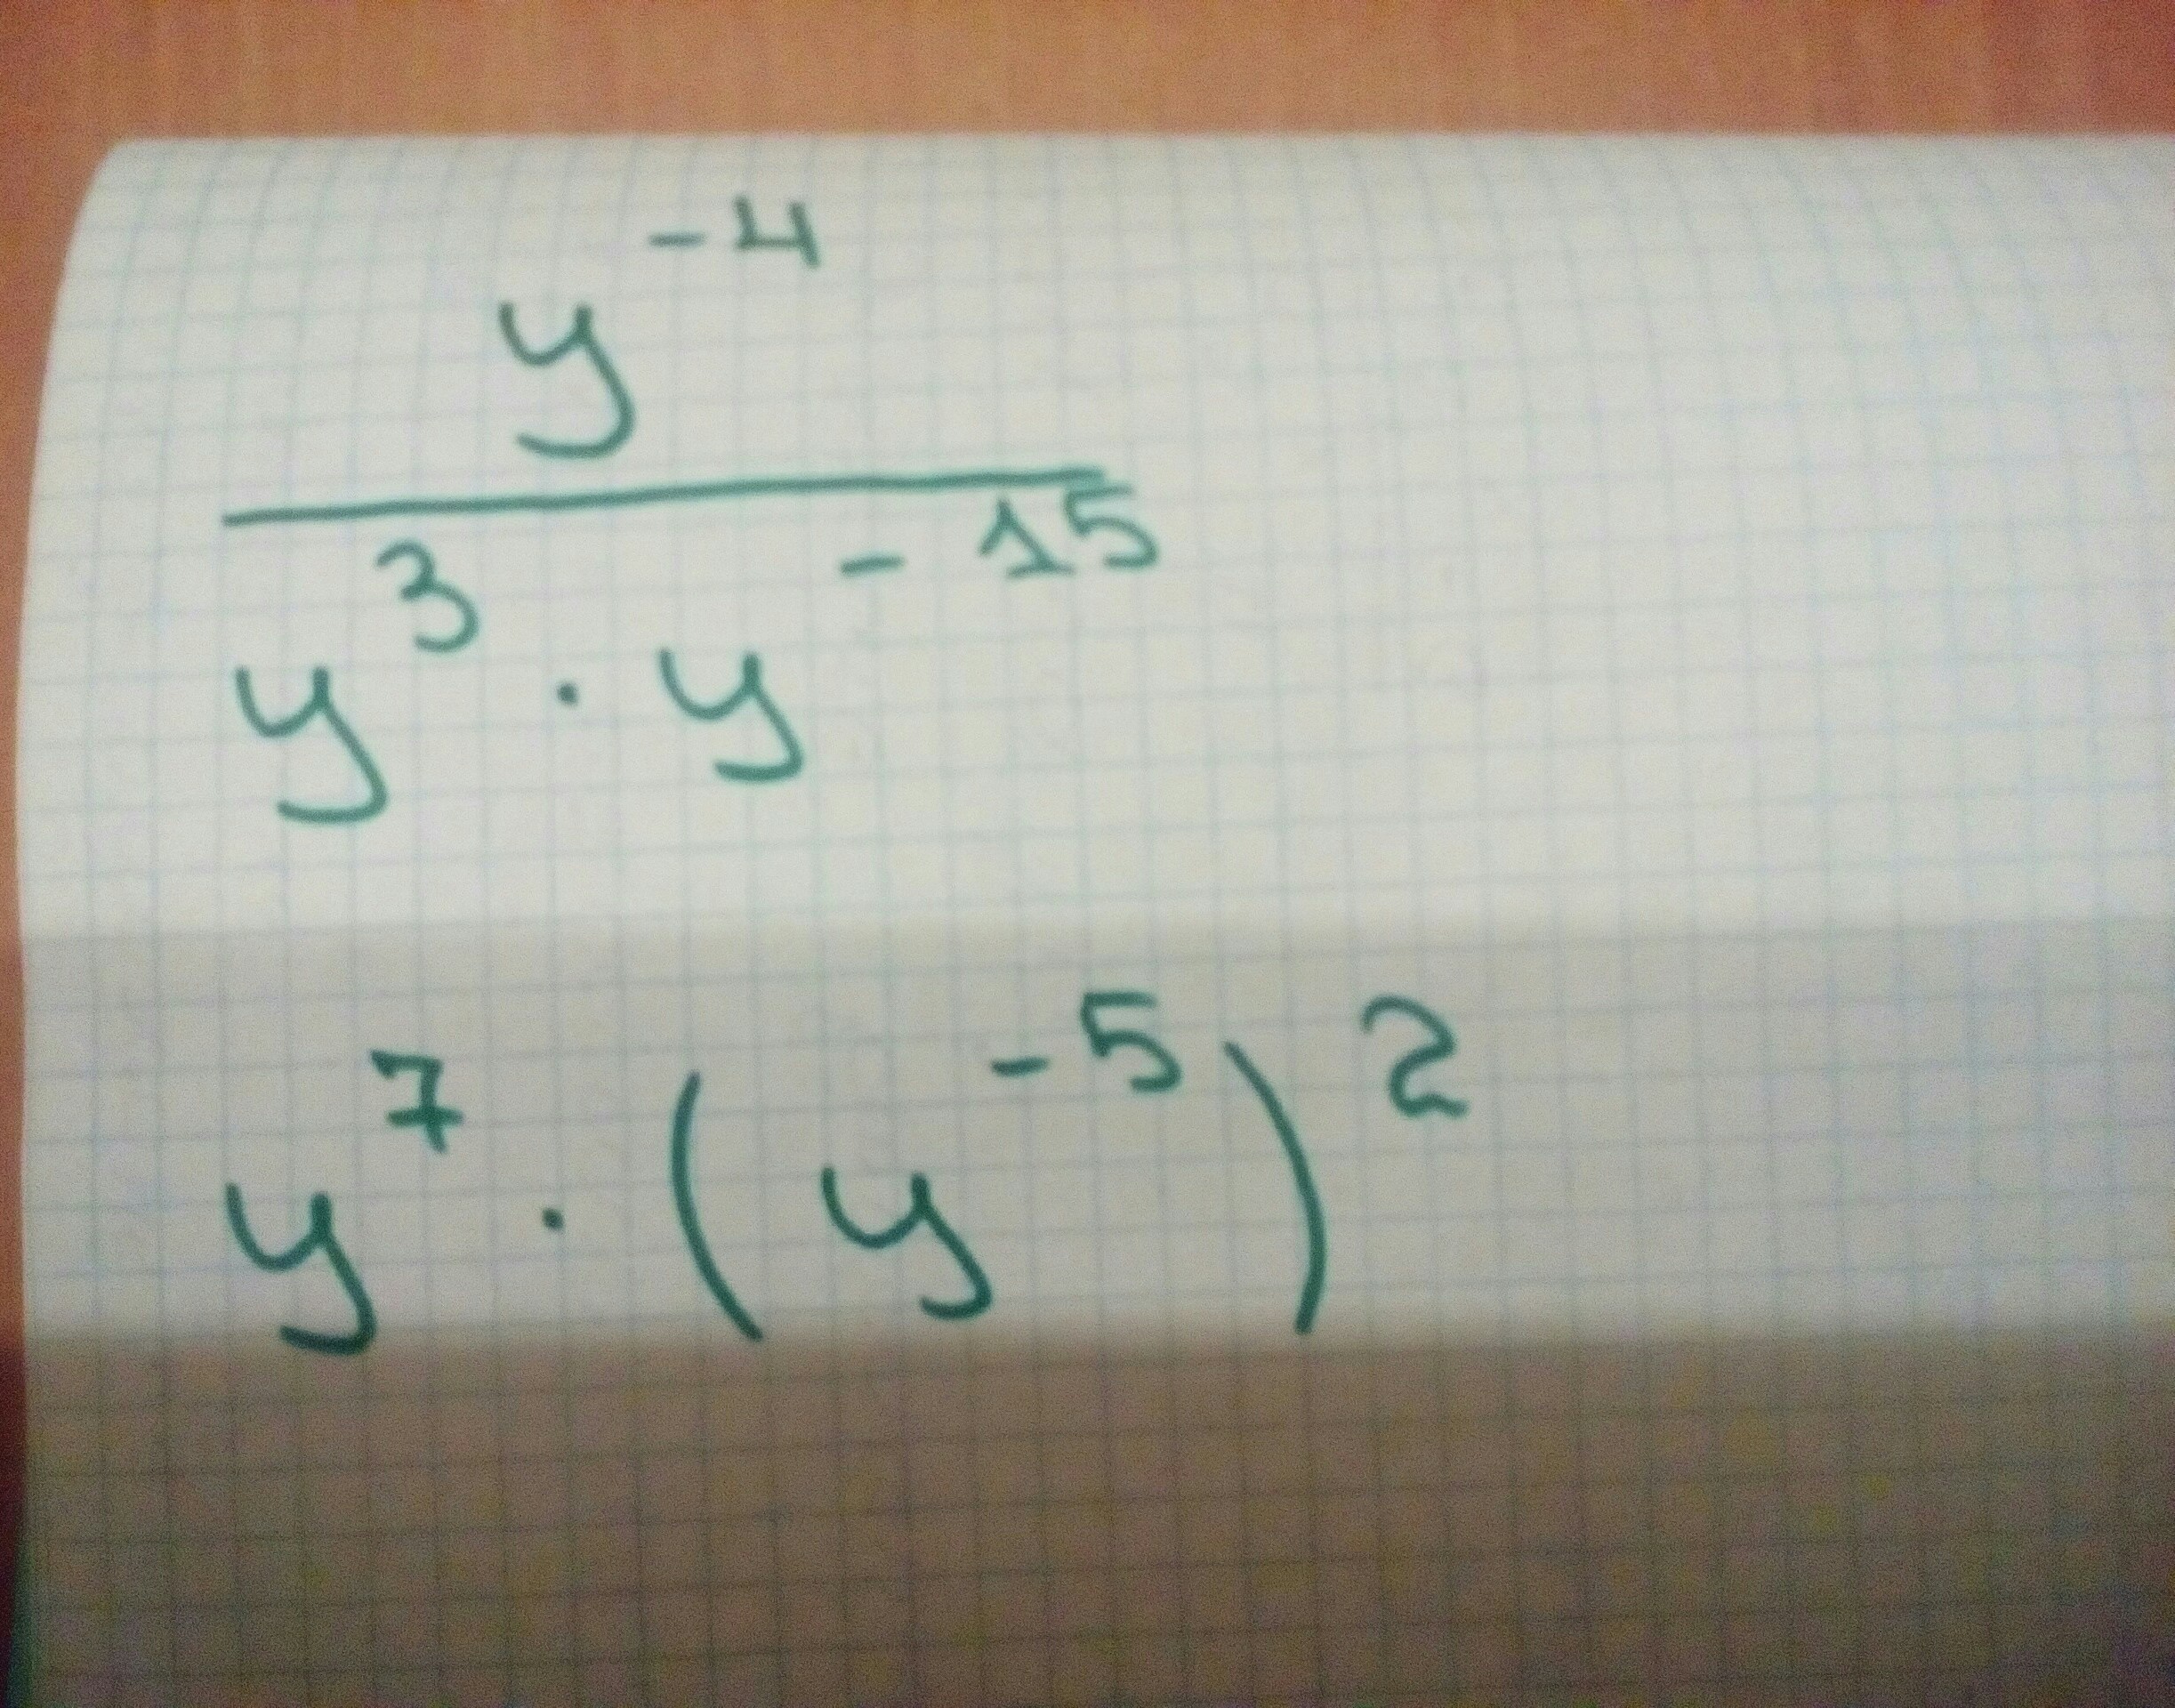 y⁻⁴
y³ · y⁻¹⁵
y⁷ · (y⁻⁵)²